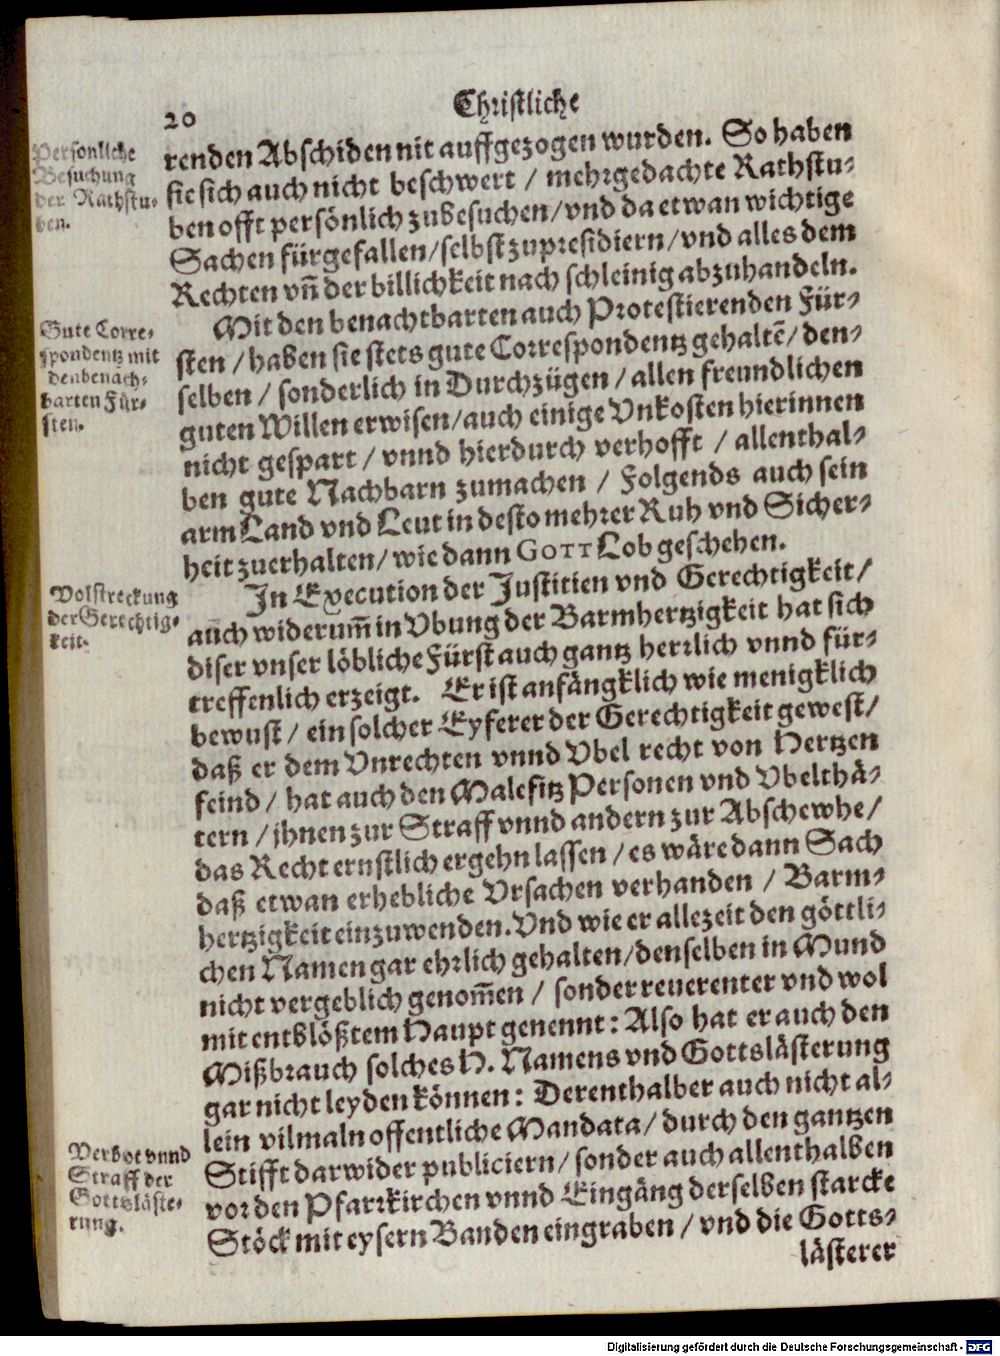 20
Christliche
Personliche
Besuchung
der Rathstu-
ben.
renden Abschiden nit auffgezogen wurden. So haben
sie sich auch nicht beschwert / mehrgedachte Rathstu-
ben offt persönlich zubesuchen/vnd da etwan wichtige
Sachen fürgefallen/selbst zupresidiern/vnd alles dem
Rechten vñ der billichkeit nach schleinig abzuhandeln.
Gute Corre-
spondentz mit
den benach-
barten Für-
sten.
Mit den benachtbarten auch Protestierenden Für-
sten / haben sie stets gute Correspondentz gehaltẽ/ den-
selben / sonderlich in Durchzügen / allen freundlichen
guten Willen erwisen/auch einige Vnkosten hierinnen
nicht gespart / vnnd hierdurch verhofft / allenthal-
ben gute Nachbarn zumachen / Folgends auch sein
arm Land vnd Leut in desto mehrer Ruh vnd Sicher-
heit zuerhalten/ wie dann GOTT Lob geschehen.
Volstreckung
der Gerechtig-
keit.
In Execution der Justitien vnd Gerechtigkeit/
auch widerum̃ in Vbung der Barmhertzigkeit hat sich
diser vnser löbliche Fürst auch gantz herrlich vnnd für-
treffenlich erzeigt. Er ist anfängklich wie menigklich
bewust / ein solcher Eyferer der Gerechtigkeit gewest/
daß er dem Vnrechten vnnd Vbel recht von Hertzen
feind / hat auch den Malefitz Personen vnd Vbelthä-
tern / jhnen zur Straff vnnd andern zur Abschewhe/
das Recht ernstlich ergehn lassen / es wäre dann Sach
daß etwan erhebliche Vrsachen verhanden / Barm-
hertzigkeit einzuwenden. Vnd wie er allezeit den göttli-
chen Namen gar ehrlich gehalten/denselben in Mund
nicht vergeblich genom̃en / sonder reuerenter vnd wol
mit entblößtem Haupt genennt: Also hat er auch den
Mißbrauch solches H. Namens vnd Gottslästerung
gar nicht leyden können: Derenthalber auch nicht al-
lein vilmaln offentliche Mandata/ durch den gantzen
Verbot vnnd
Straff der
Gottsläste-
rung.
Stifft darwider publiciern/ sonder auch allenthalben
vor den Pfarrkirchen vnnd Eingäng derselben starcke
Stöck mit eysern Banden eingraben / vnd die Gotts-
lästerer
Digitalisierung gefördert durch die Deutsche Forschungsgemeinschaft - DFG